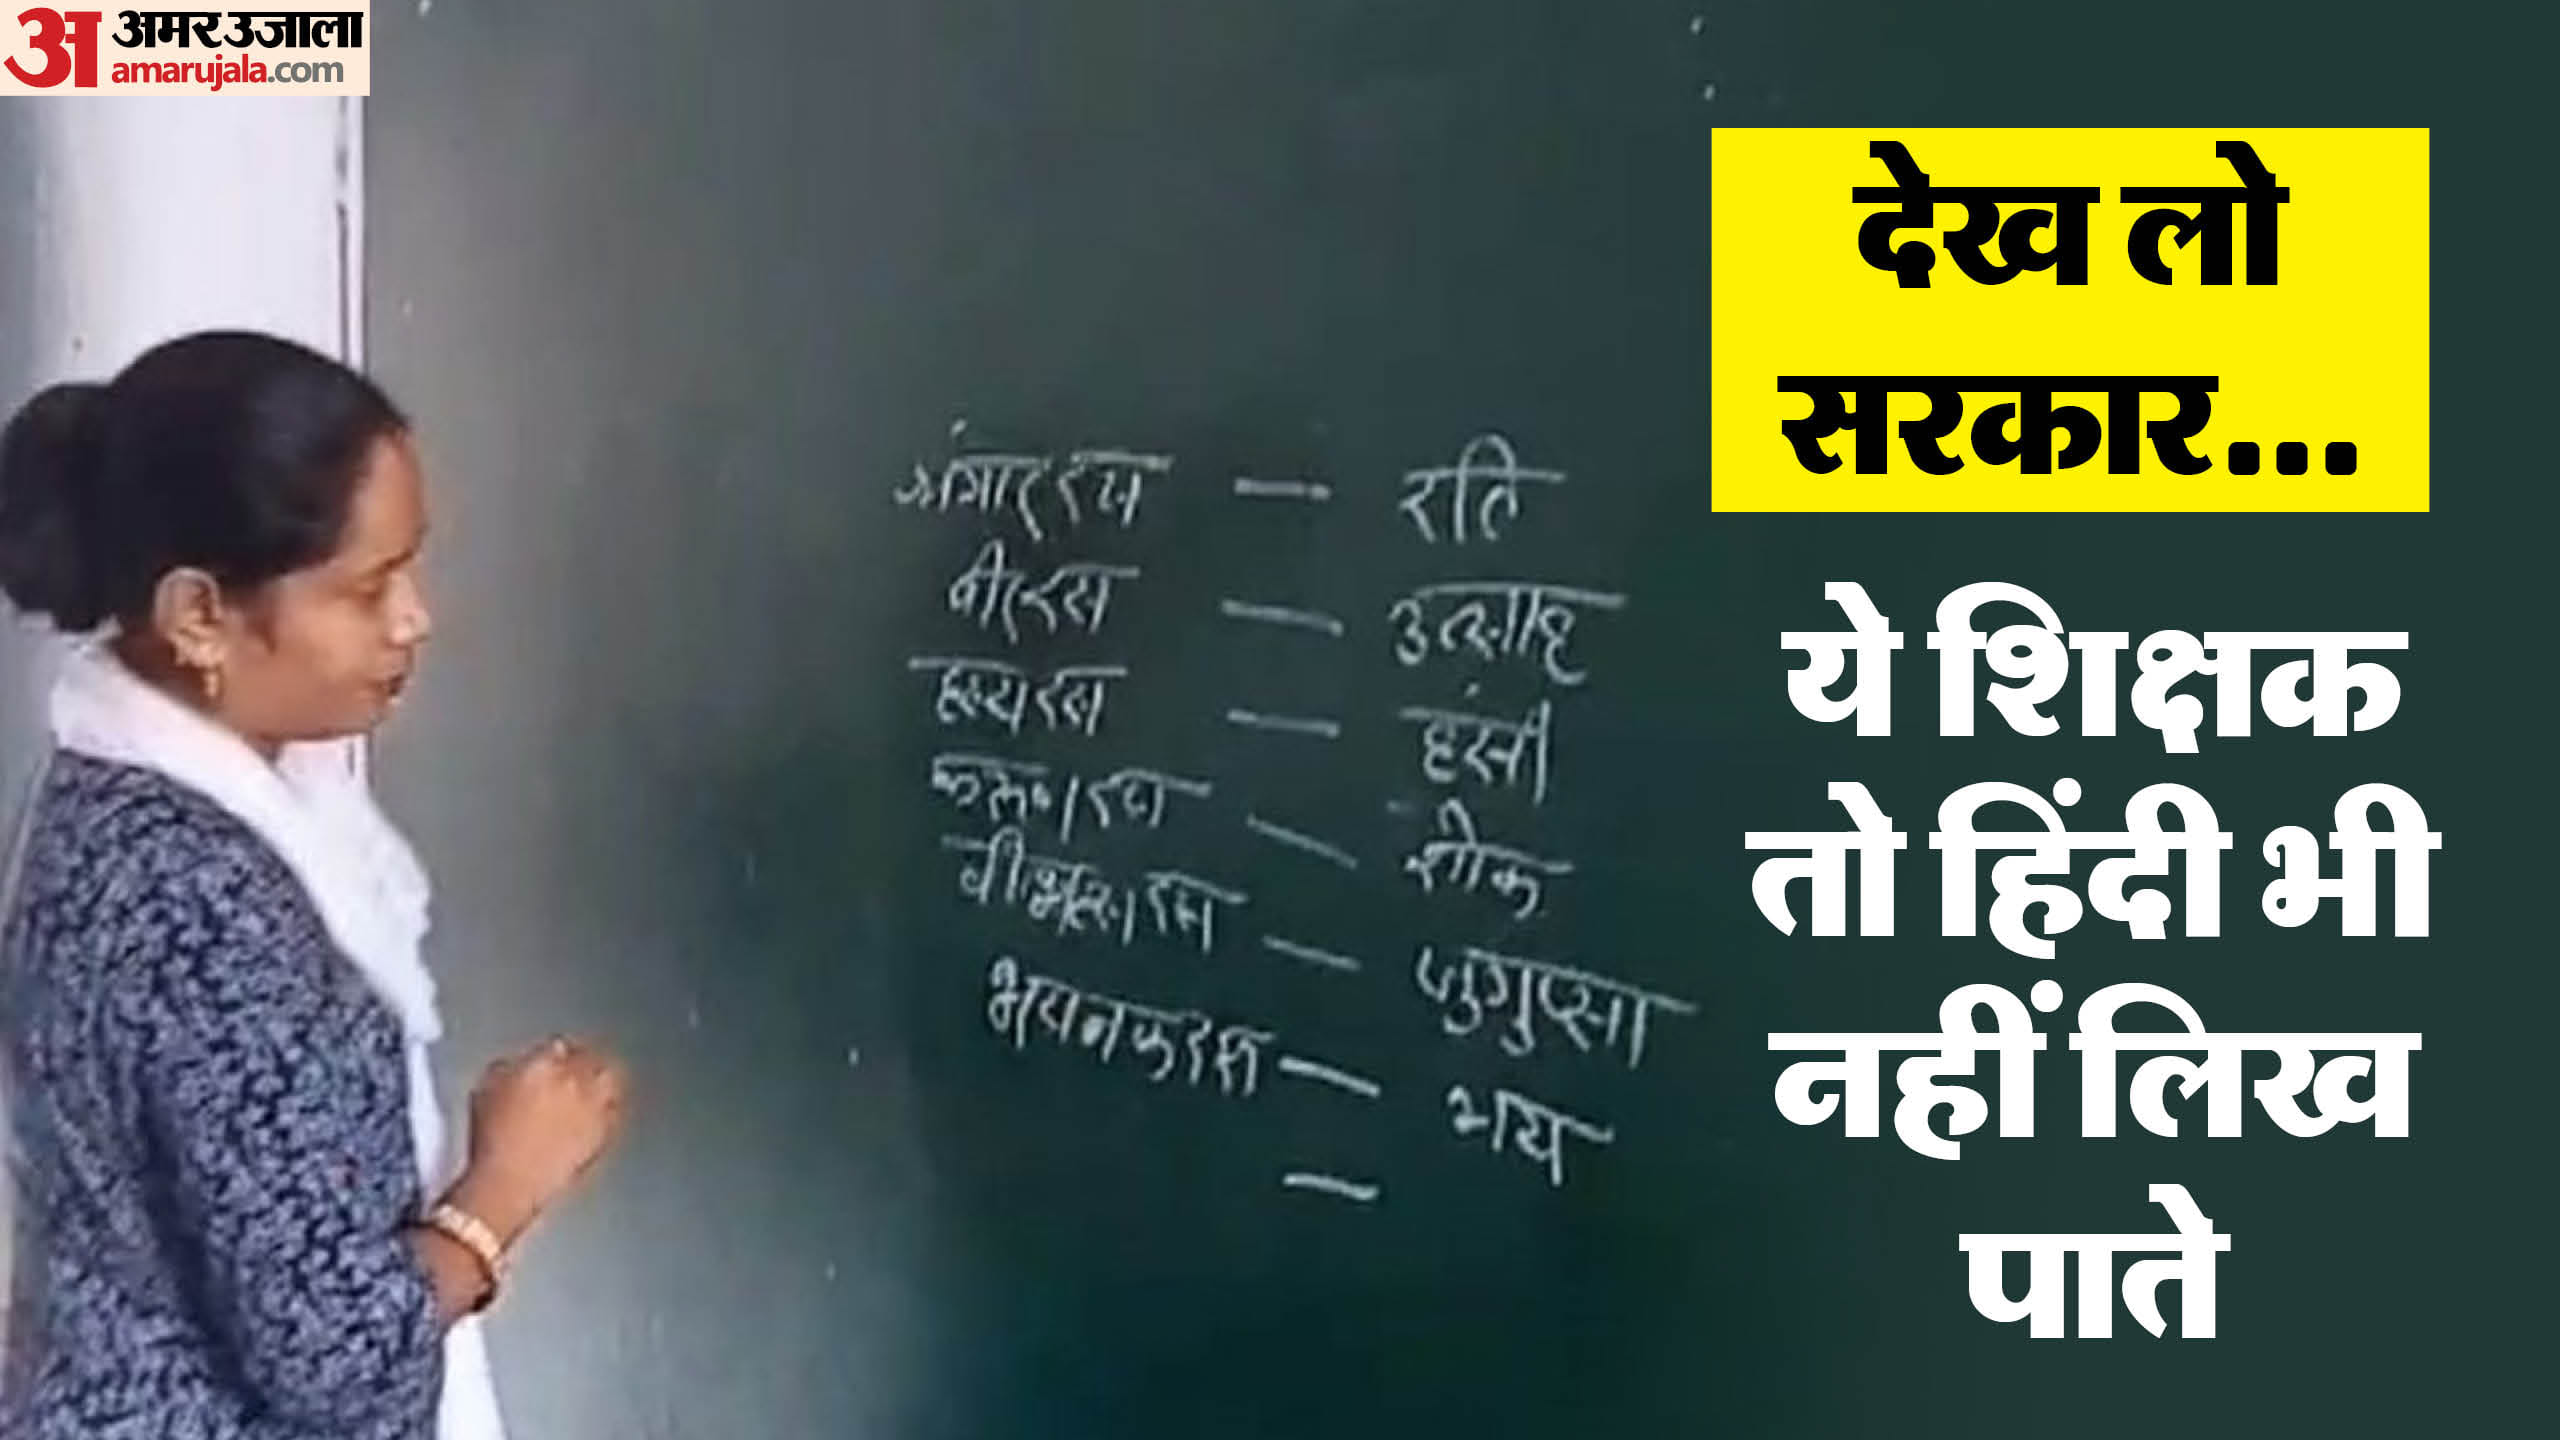 अ अमर उजाला
amarujala.com
देख लो
सरकार...
ये शिक्षक
तो हिंदी भी
नहीं लिख
पाते
रस — रति
वीररस — उत्साह
हस्य रस — हंसी
रस — शोक
रस — जुगुप्सा
भयनक रश — भय
—